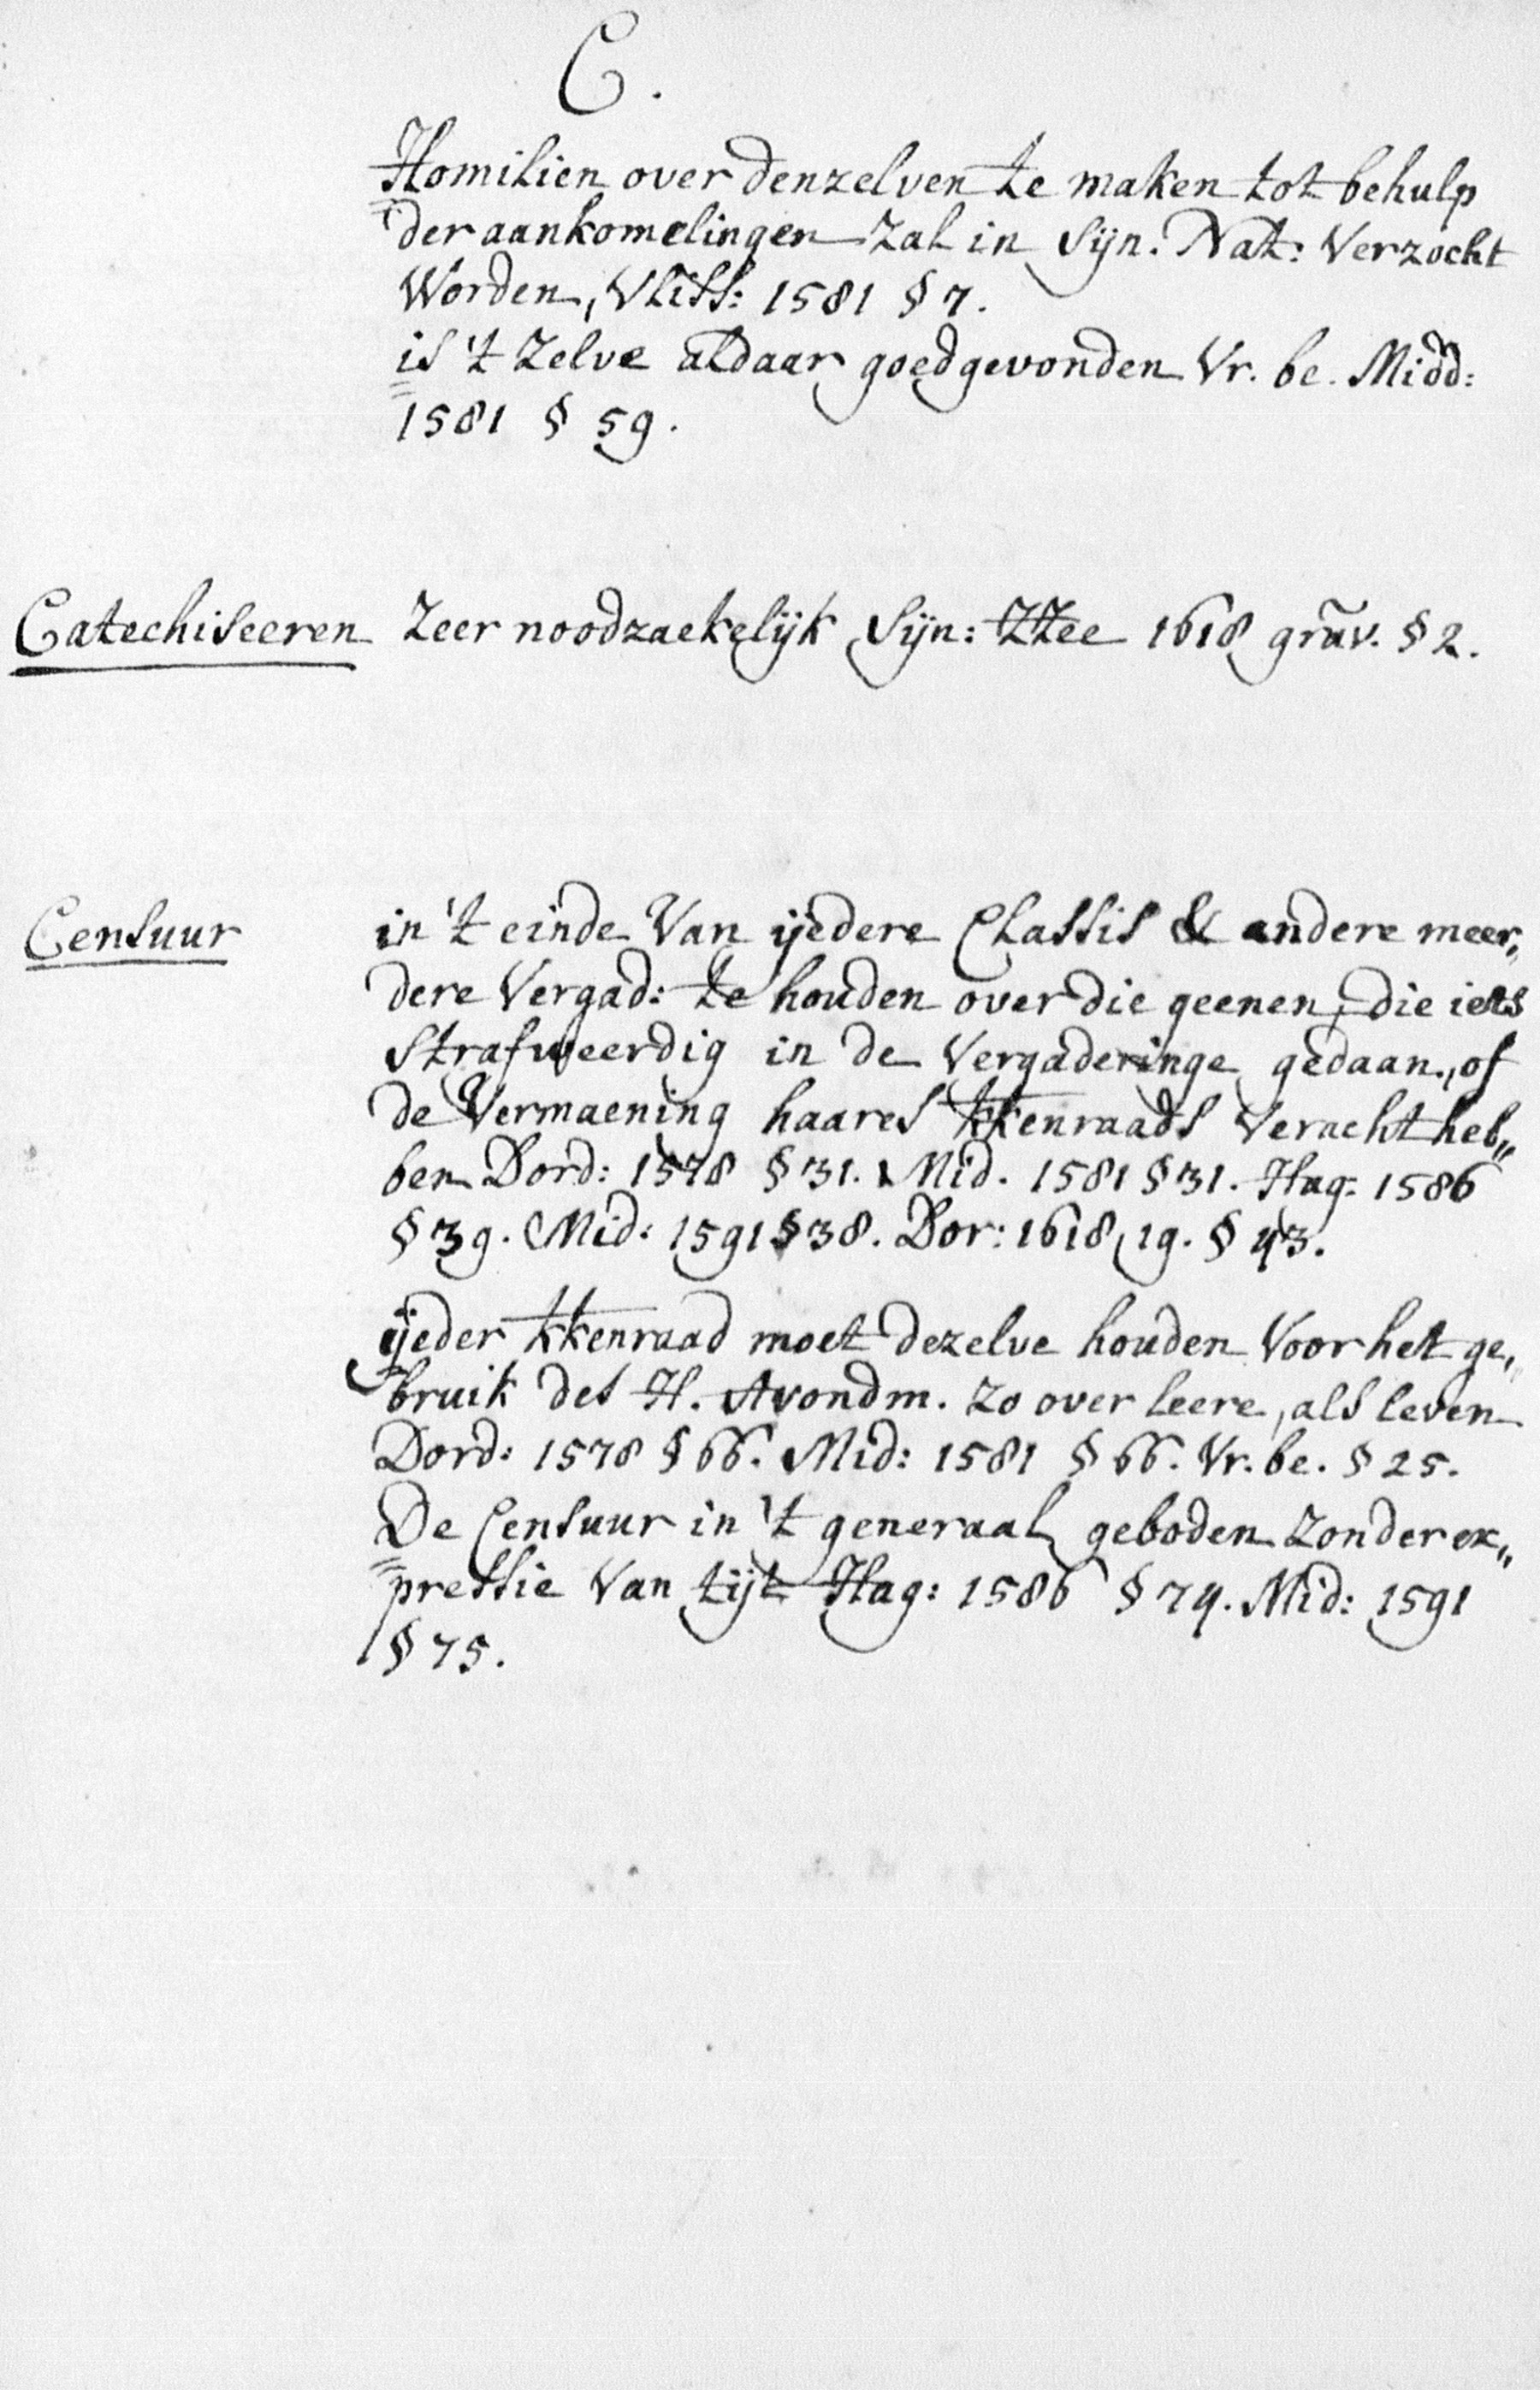 C.
Homilien over denzelven te maken tot behulp
der aankomelingen zal in Sijn. Nat: Verzocht
Worden, Vliss: 1581 § 7.
is 't Zelve aldaar goedgevonden Vr. be. Midd:
1581 § 59.
Catechiseeren Zeer noodzaekelijk Sijn: ZZee 1618 grav. § 2.
Censuur in 't einde Van ijedere Classis & andere meer„
dere Vergad: te houden over die geenen, die iets
Strafweerdig in de Vergaderinge gedaan, of
de Vermaening haares kkenraads Veracht heb„
ben Dord: 1578 § 31. Mid. 1581 § 31. Hag: 1586
§ 39. Mid: 1591 § 38. Dor: 1618, 19. § 43.
ijeder kkenraad moet dezelve houden Voor het ge„
bruik des H. Avondm. Zo over leere, als leven
Dord: 1578 § 66. Mid: 1581 § 66. Vr. be. § 25.
De Censuur in 't generaal geboden Zonder ex„
pressie Van tijt Hag: 1586 § 74. Mid: 1591
§ 75.